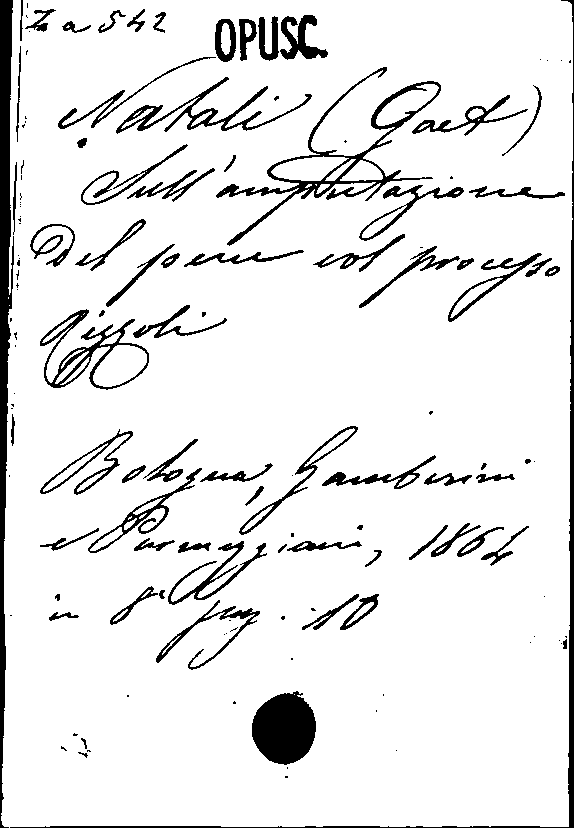 Za 542
OPUSC.
Natali (Gaet)
Sull'amputazione
Del pene col processo
Rizzoli
Bologna, Gamberini
e Parmeggiani, 1864
in 8° pag. 10